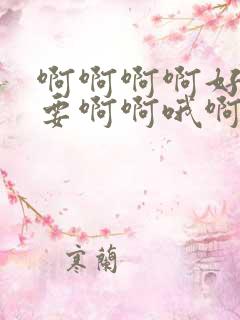 啊啊啊啊好
要啊啊哦啊
寒蘭